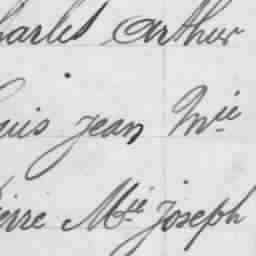 harles Arthur
uis Jean Mie
ierre Mie Joseph